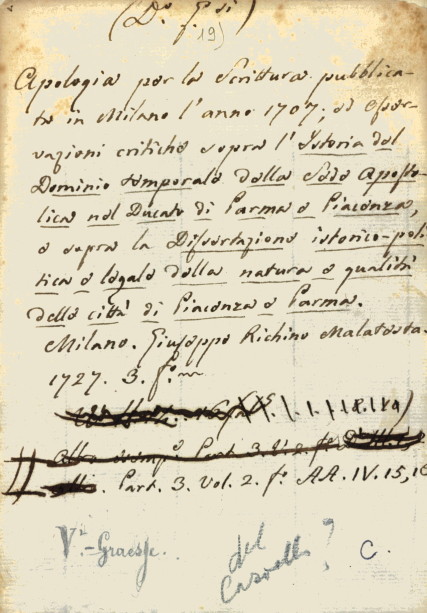 19)
Apologia per la Scrittura pubblica-
ta in Milano l'anno 1707; ed osser-
vazioni critiche sopra l'Istoria del
Dominio temporale della Sede Aposto-
lica nel Ducato di Parma e Piacenza,
e sopra la Dissertazione istorico-poli
tica e legale della natura e qualità
delle città di Piacenza e Parma.
Milano. Giuseppe Richino Malatesta.
1727. 3. f.º
Part. 3. Vol. 2. fº AA. IV. 15, 16
V.-Graesse.
del ?
C.